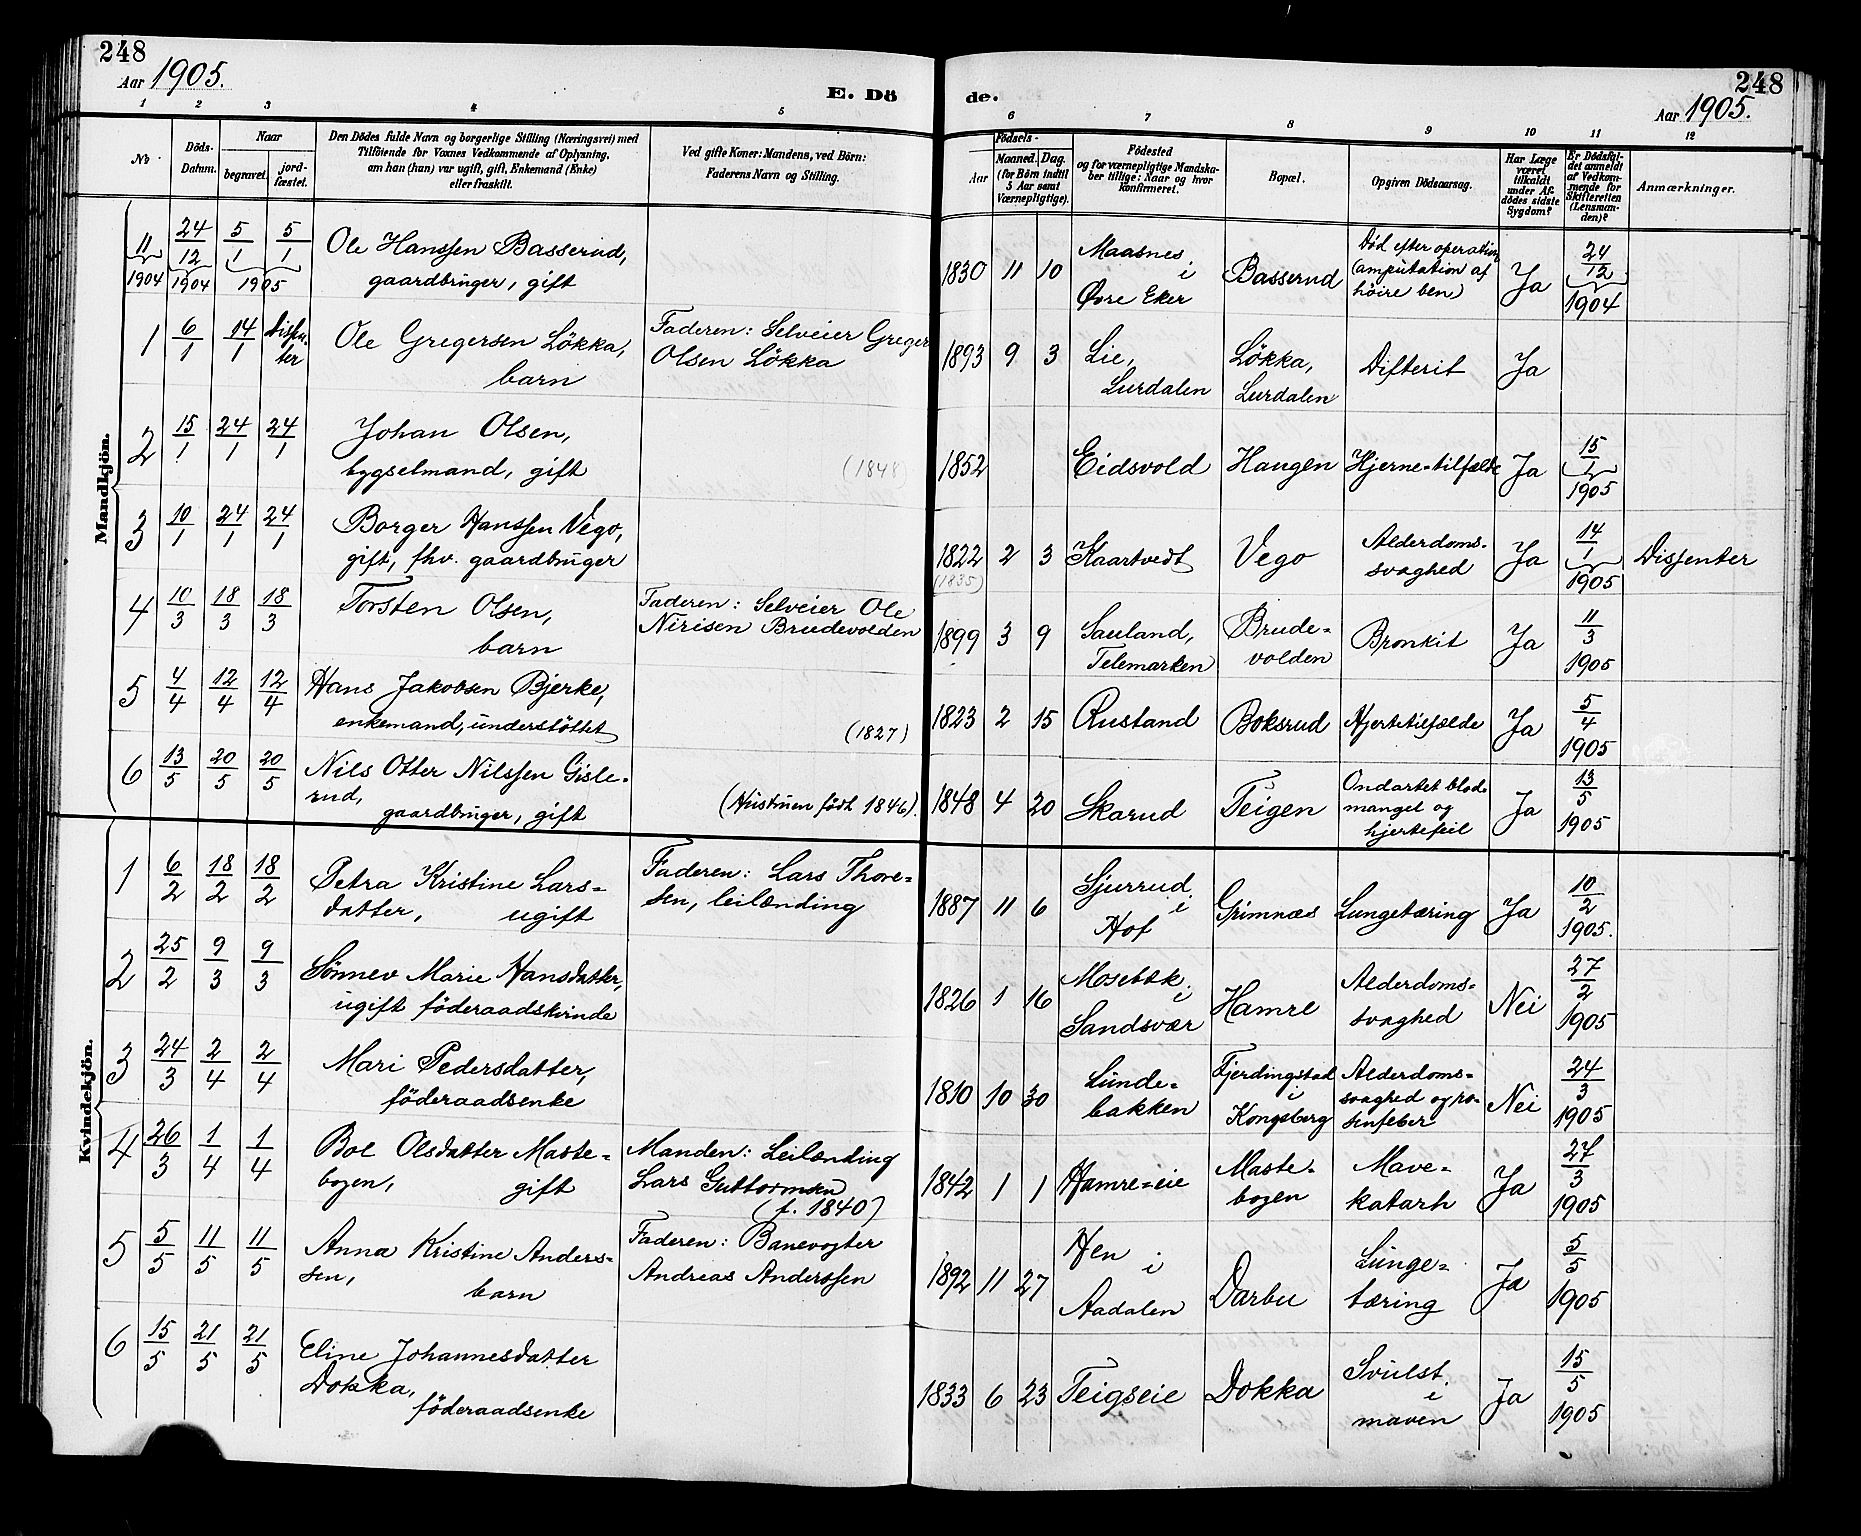 248
Aar 1905.
E. Dö
de.
248
Aar 1905.
1 2 3 4 5 6 7 8 9 10 11 12
No
Döds-Datum.
Naar
begravet.
jord-fæstet.
Den Dödes fulde Navn og borgerlige Stilling (Næringsvei) med
Tilföiende for Voxnes Vedkommende af Oplysning,
om han (hun) var ugift, gift, Enkemand (Enke)
eller fraskilt.
Ved gifte Koner: Mandens, ved Börn:
Faderens Navn og Stilling.
Födsels-
Aar
Maaned. Dag.
(for Börn indtil
5 Aar samt
Værnepligtige).
Födested
og for værnepligtige Mandska-
ber tillige: Naar og hvor
konfirmeret.
Bopæl.
Opgiven Dödsaarsag.
Har Læge
været
tilkaldt
under Af-
dödes sidste
Sygdom?
Er Dödsfal-
det anmeldt
af Vedkom-
mende for
Skifteretten
(Lensman-
den)?
Anmærkninger.
Mandkjön.
11 1904 24/12 1904 5/1 5/1 1905 Ole Hanssen Basserud,
gaardbruger, gift
1830 11 10 Maasnes i Øvre Eker Basserud Död efter operation (amputation af höire ben) Ja 24/12 1904
1 6/1 14/1 Dissenter Ole Gregersen Lökka,
barn
Faderen: Selveier Greger
Olsen Lökka
1893 9 3 Lie, Lurdalen Lökka, Lurdalen Difterit Ja
2 15/1 24/1 24/1 Johan Olsen,
bygselmand, gift
(1848)
1852 Eidsvold Haugen Hjerne-tilfælde Ja 15/1 1905
3 10/1 24/1 24/1 Borger Hanssen Vego,
gift, fhv. gaardbruger
1822 (1835) 2 3 Kaartvedt Vego Alderdoms-svaghed Ja 14/1 1905 Dissenter
4 10/3 18/3 18/3 Torsten Olsen,
barn
Faderen: Selveier Ole
Nirisen Brudevolden
1899 3 9 Sauland, Telemarken Brude-volden Bronkit Ja 11/3 1905
5 4/4 12/4 12/4 Hans Jakobsen Bjerke,
enkemand, understöttet
(1827)
1823 2 15 Rustand Boksrud Hjertetilfælde Ja 5/4 1905
6 13/5 20/5 20/5 Nils Otter Nilssen Gisle-
rud,
gaardbruger, gift
(Hustruen född 1846).
1848 4 20 Skarud Teigen Ondartet blod-mangel og hjertefeil Ja 13/5 1905
Kvindekjön.
1 6/2 18/2 18/2 Petra Kristine Lars-
datter, ugift
Faderen: Lars Thore-
sen, leilænding
1887 11 6 Sjurrud i Hof Grimnæs Lungetæring Ja 10/2 1905.
2 25/2 9/3 9/3 Sönnev Marie Hansdatter,
ugift föderaadskvinde
1826 1 16 Mosebæk i Sandsvær Hamre Alderdoms-svaghed Nei 27/2 1905
3 24/3 2/4 2/4 Mari Pedersdatter,
föderaadsenke
1810 10 30 Lunde-bakken Fjerdingstad i Kongsberg Alderdoms-svaghed og ro-senfeber Nei 24/3 1905
4 26/3 1/4 1/4 Boe Olsdatter Maste-
bogen, gift
Manden: Leilænding
Lars Guttormsen
(f. 1840)
1842 1 1 Hamre-eie Maste-bogen Mave-katarh Ja 27/3 1905
5 5/5 11/5 11/5 Anna Kristine Anders-
sen, barn
Faderen: Banevogter
Andreas Anderssen
1892 11 27 Hen i Aadalen Darbu Lunge-tæring Ja 5/5 1905
6 15/5 21/5 21/5 Eline Johannesdatter
Dokka,
föderaadsenke
1833 6 23 Teigseie Dokka Svulst i maven Ja 15/5 1905